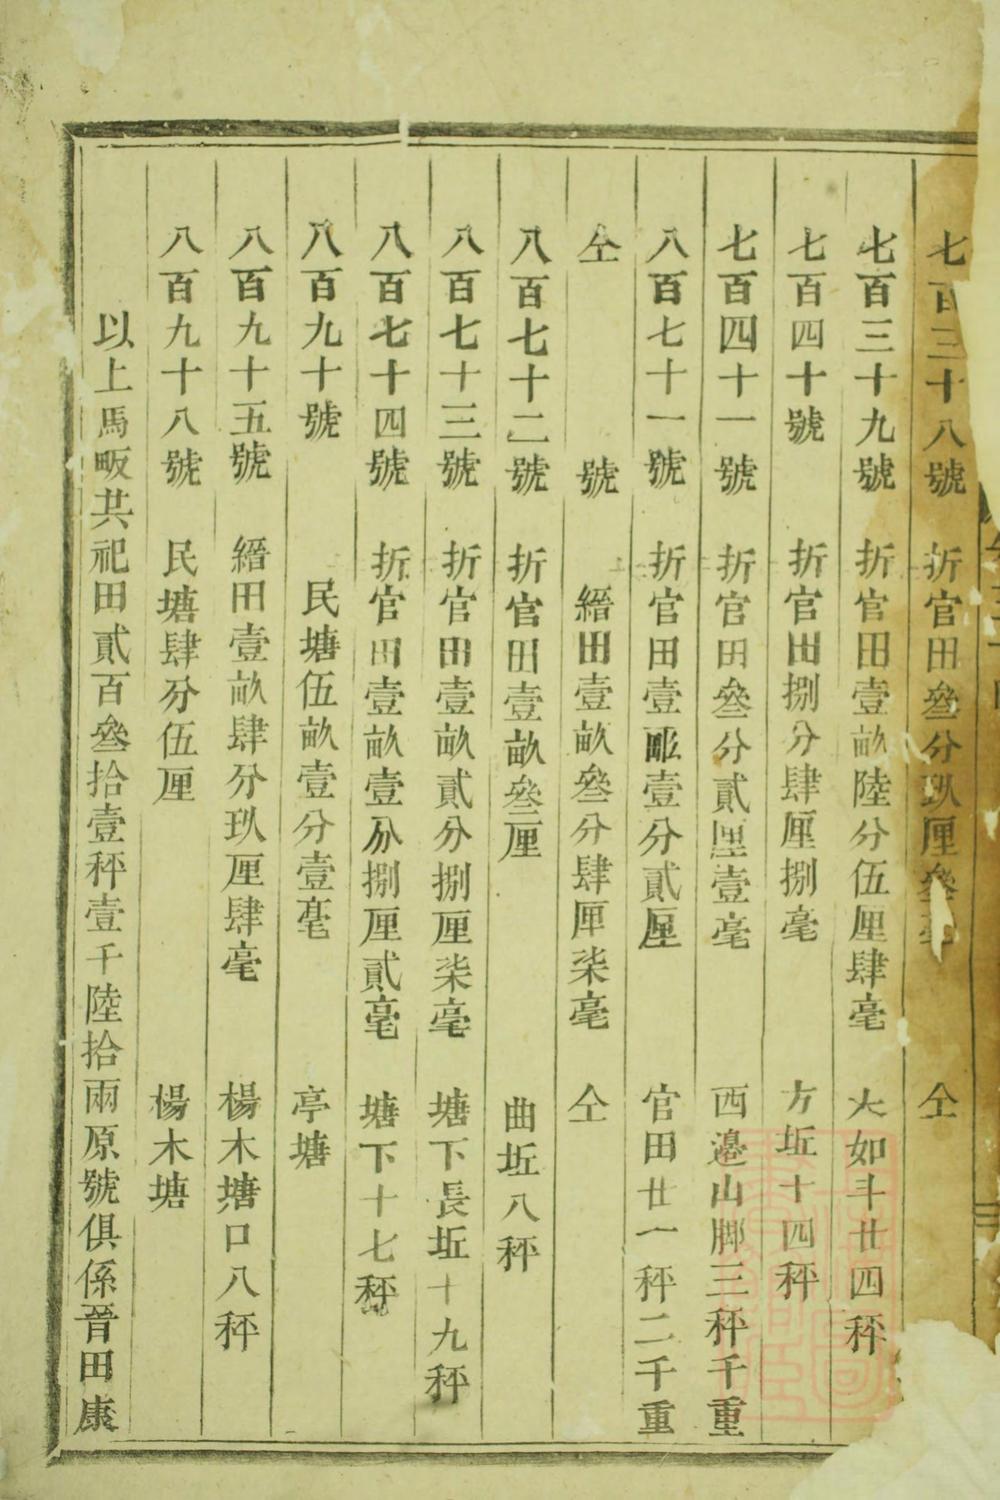 七百三十八號 折官田叄分玖厘叄毫 仝
七百三十九號 折官田壹畝陸分伍厘肆毫 大如斗廿四秤
七百四十號 折官田捌分肆厘捌毫 方坵十四秤
七百四十一號 折官田叄分貳厘壹毫 西邉山脚三秤千重
八百七十一號 折官田壹畝壹分貳厘 官田廿一秤二千重
仝 號 縉田壹畝叄分肆厘柒毫 仝
八百七十二號 折官田壹畝叄厘 曲坵八秤
八百七十三號 折官田壹畝貳分捌厘柒毫 塘下長坵十九秤
八百七十四號 折官田壹畝壹分捌厘貳毫 塘下十七秤
八百九十號 民塘伍畝壹分壹毫 亭塘
八百九十五號 縉田壹畝肆分玖厘肆毫 楊木塘口八秤
八百九十八號 民塘肆分伍厘 楊木塘
以上馬畈共祀田貳百叄拾壹秤壹千陸拾兩原號俱係晉田康